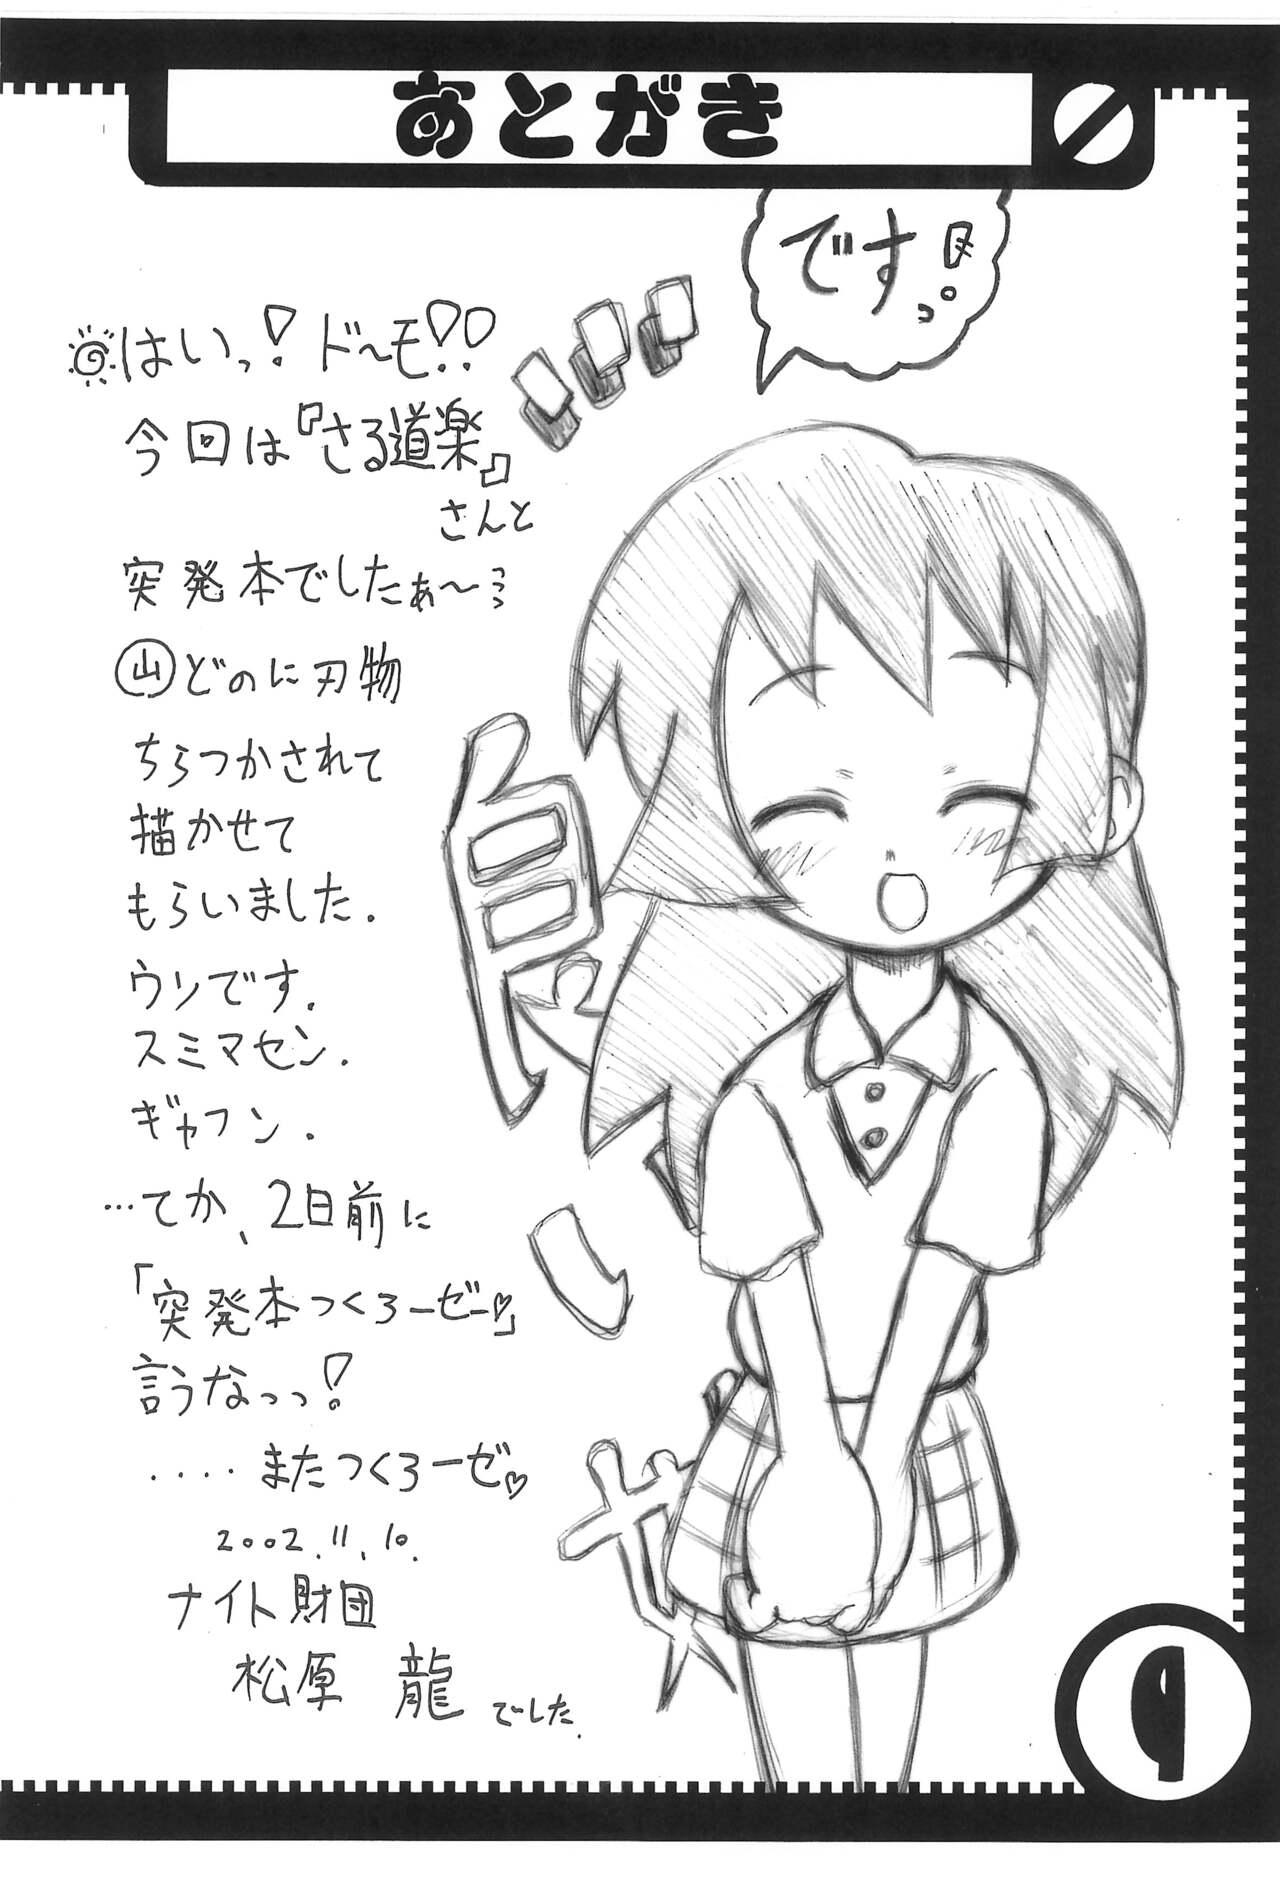 あとがき
ですっ
はいっ! ドーモ!!
今回は『さる道楽』
さんと
突発本でしたぁ〜
山どのに刃物
ちらつかされて
描かせて
もらいました.
ウソです.
スミマセン.
ギャフン.
…てか、2日前に
「突発本つくろーぜー♡」
言うなっっ!
....またつくろーぜ♡
2002.11.10.
ナイト財団
松原 龍 でした.
9